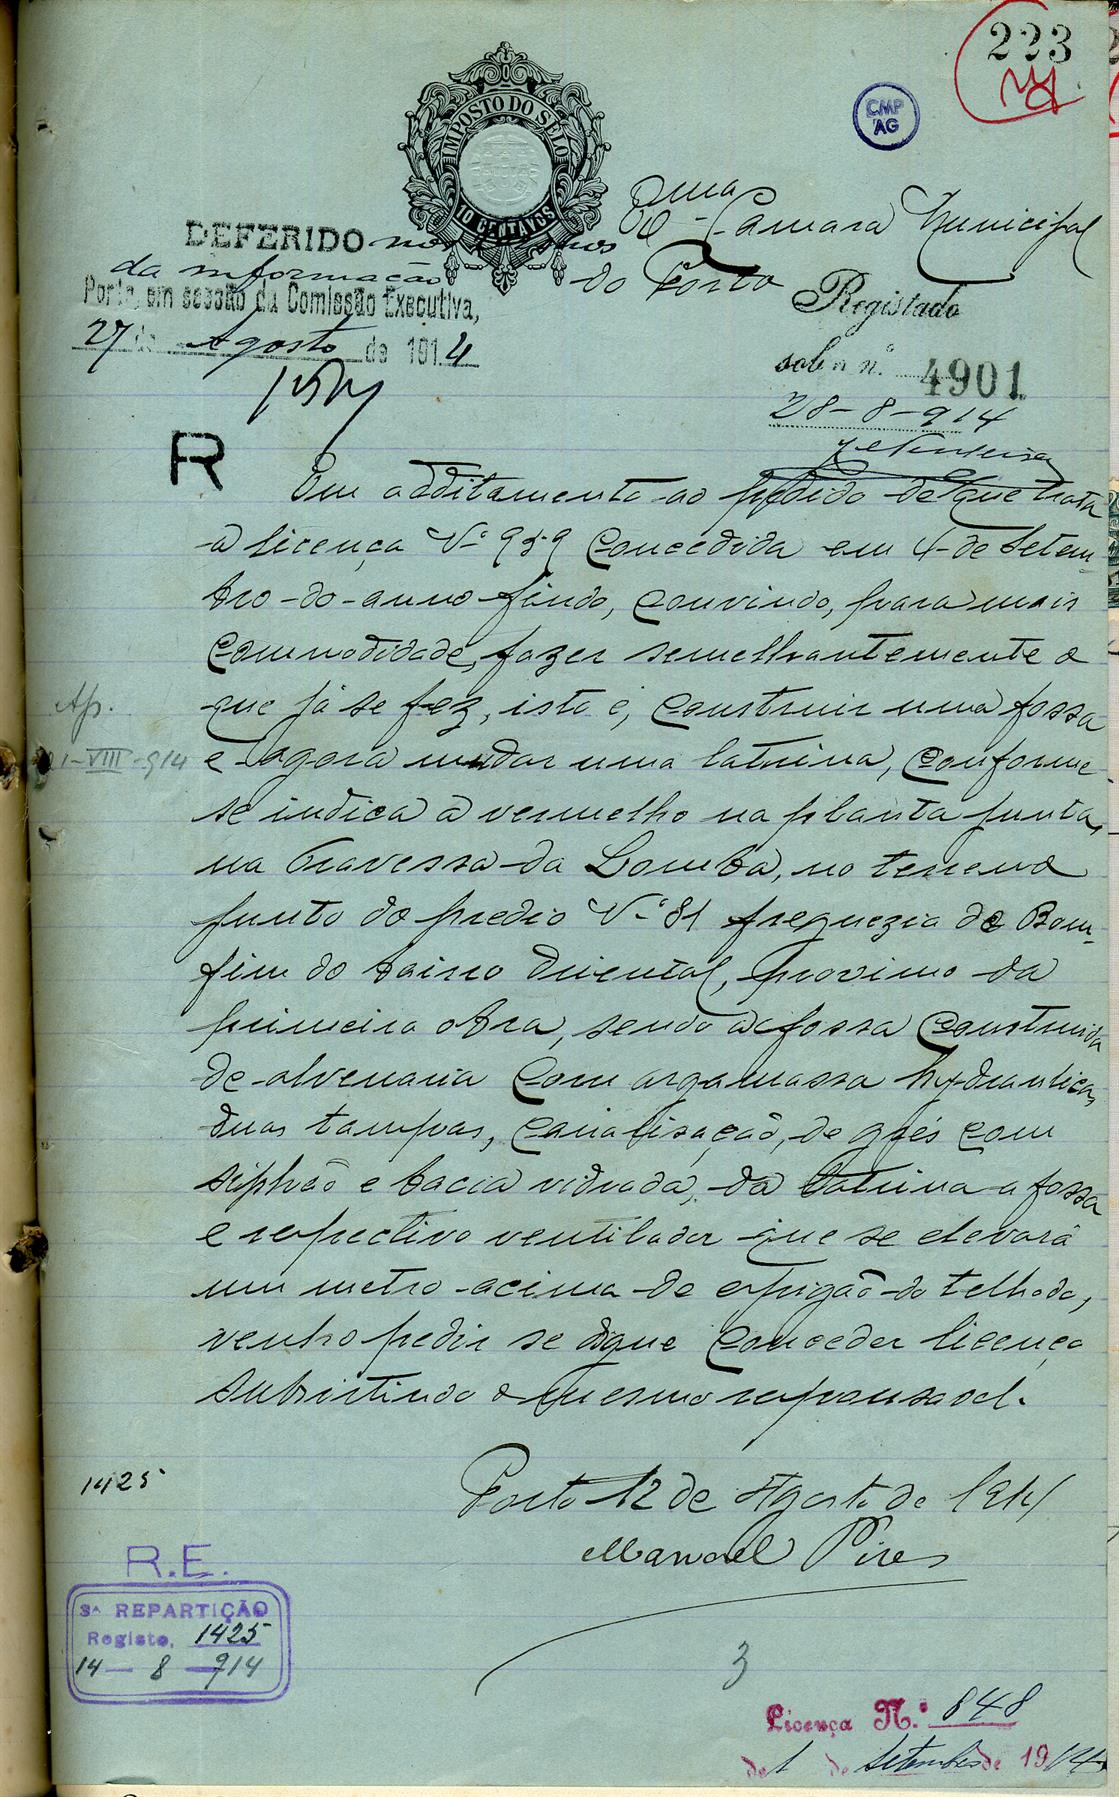 223
CMP
AG
IMPOSTO DO SELO
10 CENTAVOS
Exma Camara Municipal
do Porto
DEFERIDO nos termos
da informação
Porto, em sessão da Comissão Executiva,
27 de Agosto de 1914
Registado
sob n.º 4901
28-8-914
R
Em additamento ao pedido de que trata
a licença Nº 959 concedida em 4 de Setem-
bro do anno findo, convindo, para mais
commodidade, fazer semelhantemente o
que já se fez, isto é, construir uma fossa
e agora mudar uma latrina, conforme
se indica a vermelho na planta junta,
na Travessa da Lomba, no terreno
junto do predio Nº 81 freguezia do Bom-
fim do bairro Oriental, proximo da
primeira obra, sendo a fossa construida
de alvenaria com argamassa hydraulica,
duas tampas, canalisação de grés com
siphão e bacia vidrada, da latrina a fossa
e respectivo ventilador que se elevará
um metro acima do espigão do telhado,
venho pedir se digne conceder licença
subsistindo o mesmo responsavel.
Ap.
1-VIII-914
Porto 12 de Agosto de 1914
Manoel Pires
1425
R.E.
3ª REPARTIÇÃO
Registo, 1425
14-8-914
3
Licença N.º 848
de 1 de Setembro de 1914